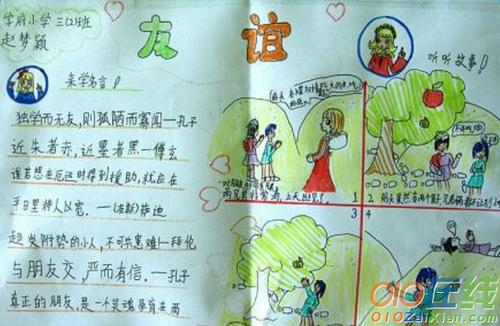 学府小学 三(2)班
赵梦颖
友谊
来学名言!
独学而无友,则孤陋而寡闻—孔子
近朱者赤,近墨者黑—傅玄
谁若想在厄运时得到援助,就应在
平日里待人以宽.—(波斯)萨迪
趋炎附势的小人,不可共患难—拜伦
与朋友交,严而有信.—孔子
真正的朋友,是一个灵魂孕育在两
听听故事!
1
2
3
4
010在线
010ZaiXian.com